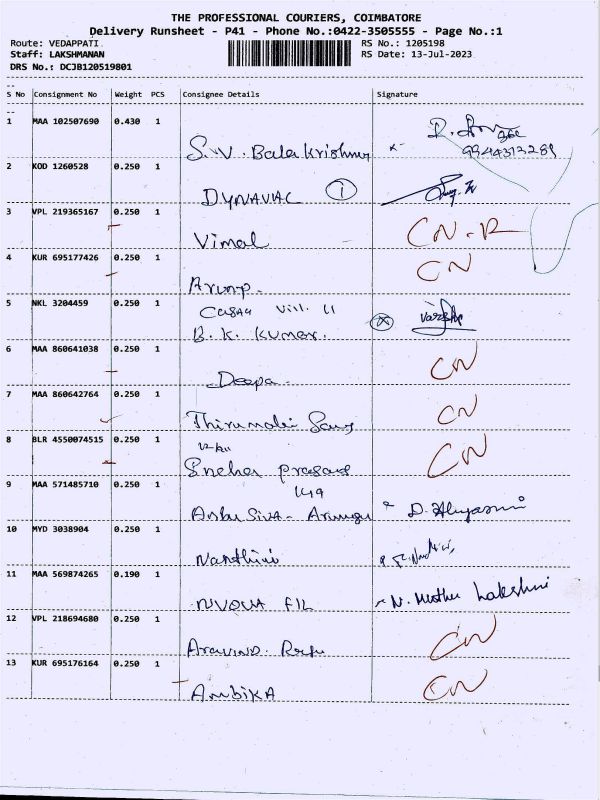 THE PROFESSIONAL COURIERS, COIMBATORE
Delivery Runsheet - P41 - Phone No.:0422-3505555 - Page No.:1
Route: VEDAPPATI RS No.: 1205198
Staff: LAKSHMANAN RS Date: 13-Jul-2023
DRS No.: DCJB120519801
S No Consignment No Weight PCS Consignee Details Signature
1 MAA 102507690 0.430 1
S.V. Balakrishnan
2 KOD 1260528 0.250 1
DYNAVAC 1
3 VPL 219365167 0.250 1
Vimal CN-R
4 KUR 695177426 0.250 1
Arunp. CN
5 NKL 3204459 0.250 1
Casaa Vill. 11
B. K. Kumar. Varsha
6 MAA 860641038 0.250 1
Deepa. CN
7 MAA 860642764 0.250 1
Thirumalai CN
8 BLR 4550074515 0.250 1
Sneha Prasad CN
149
9 MAA 571485710 0.250 1
Anbu Siva - D.
10 MYD 3038904 0.250 1
Nanthini
11 MAA 569874265 0.190 1
FIL N. Muthu Lakshmi
12 VPL 218694680 0.250 1
Aravind. CN
13 KUR 695176164 0.250 1
AmbikA CN